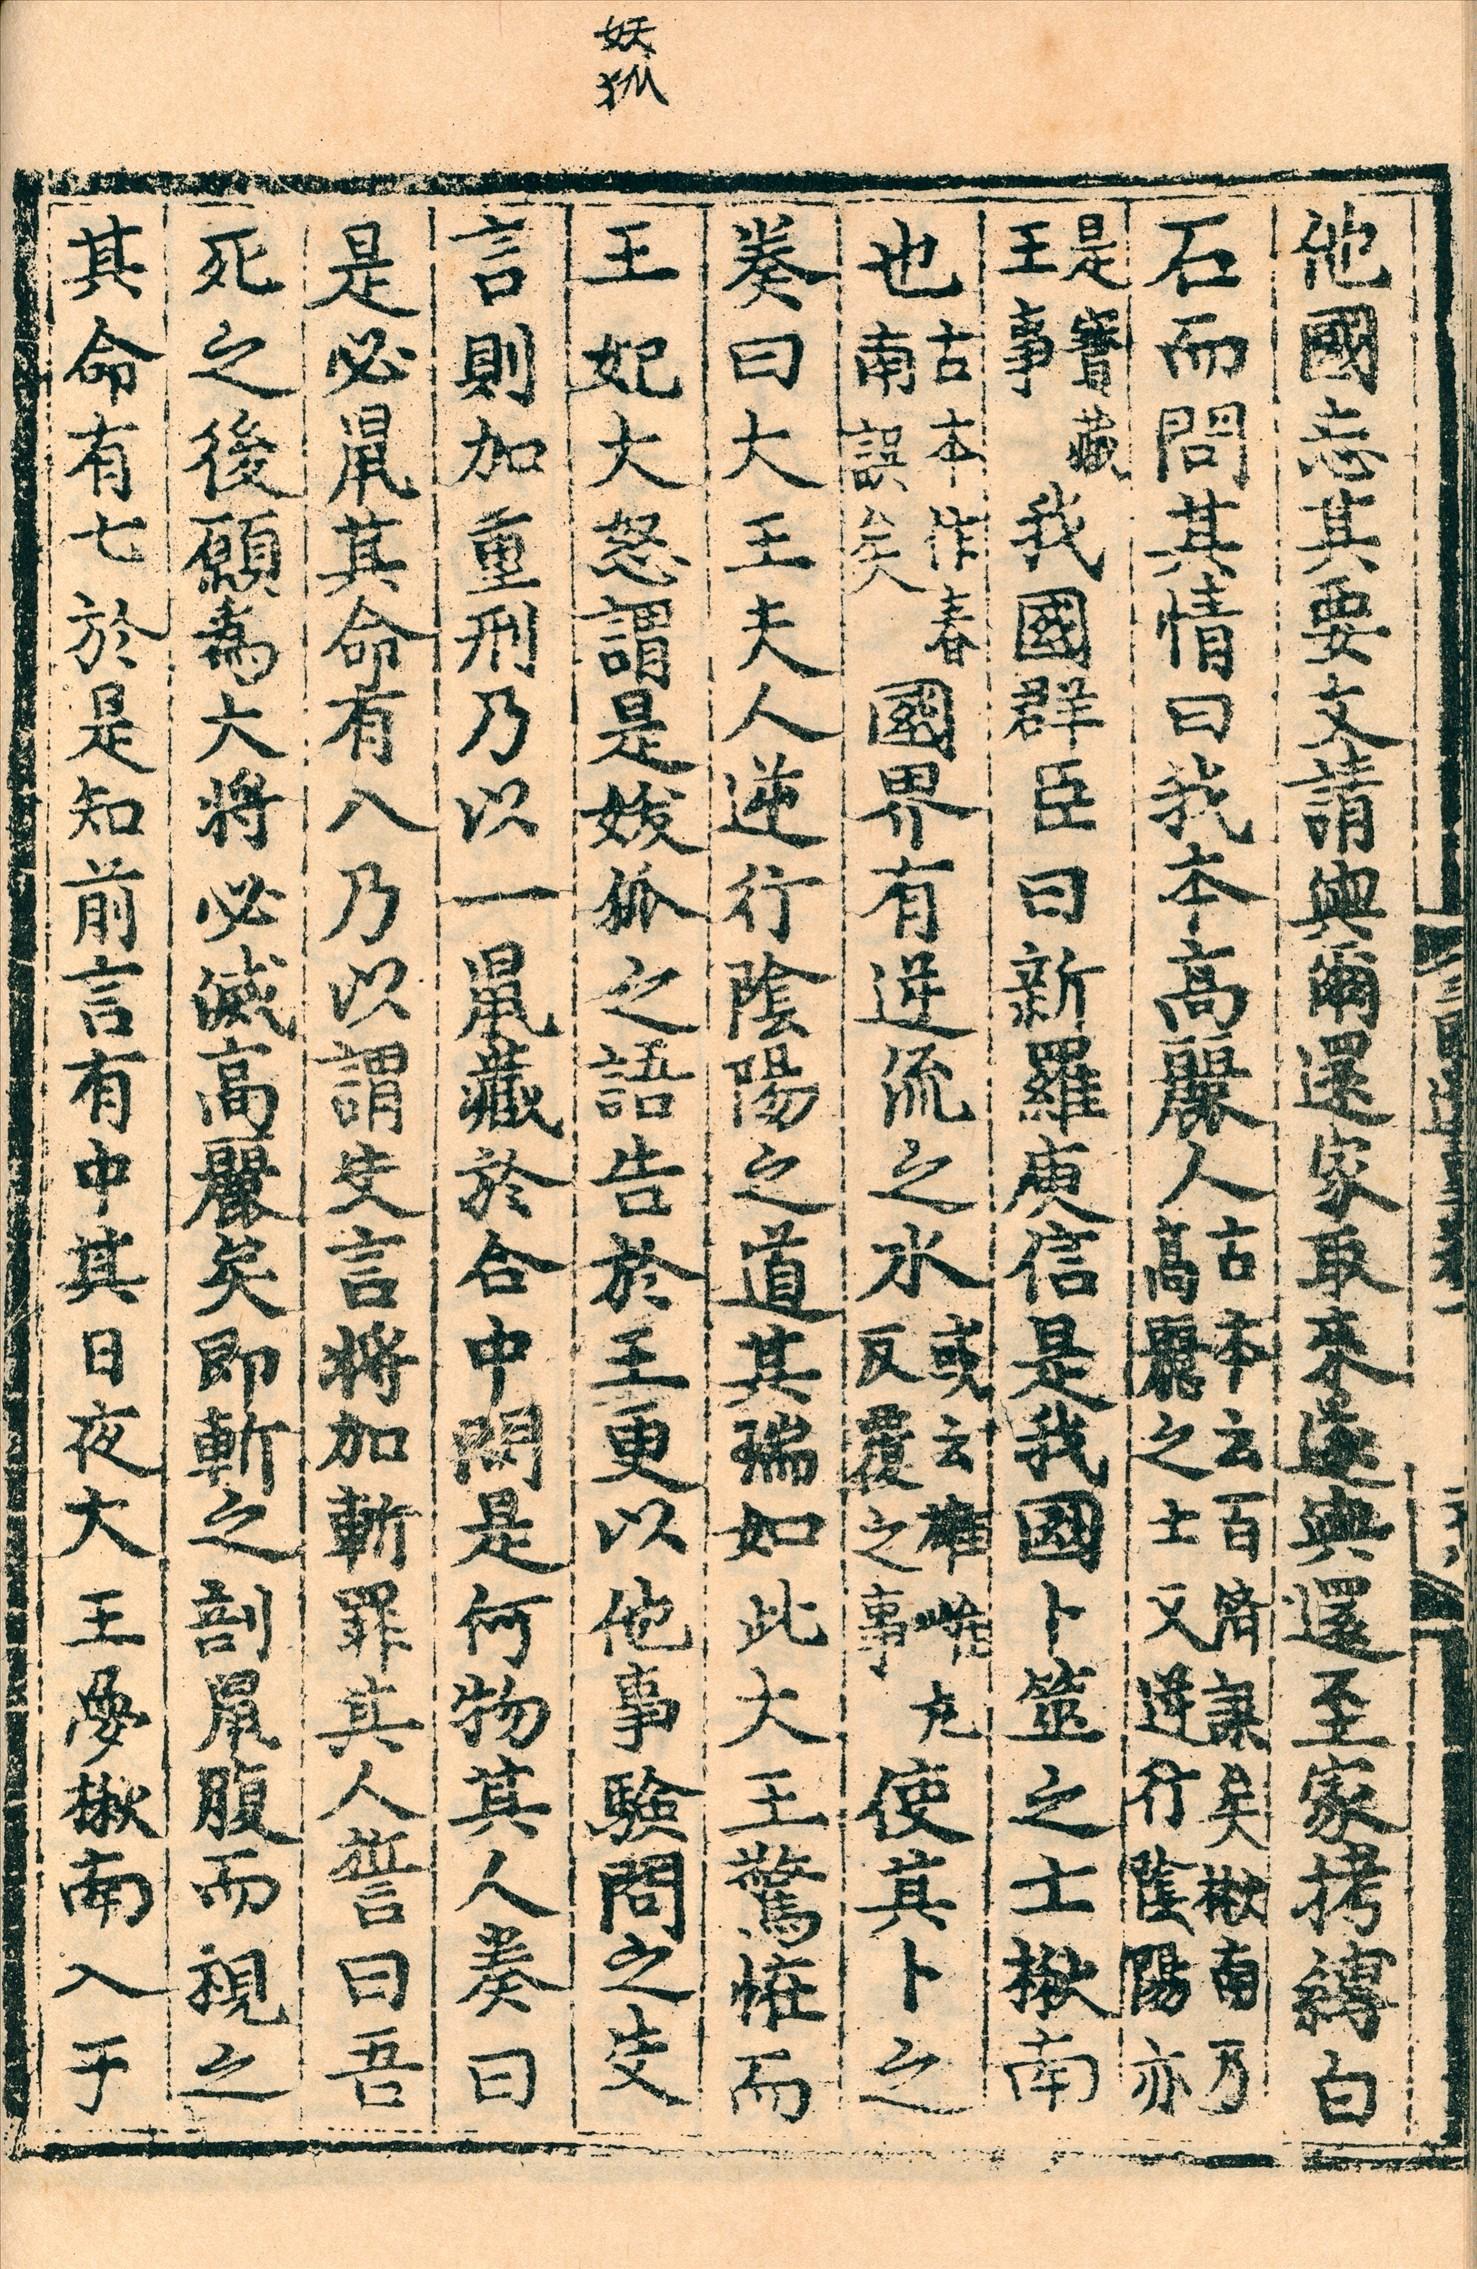 妖狐
他國忘其要文請與爾還家取來遂與還至家拷縛白
石而問其情曰我本高麗人古本云百濟誤矣楸南乃高麗之士又逆行陰陽亦
是寶藏王事我國群臣曰新羅庾信是我國卜筮之士楸南
也古本作春南誤矣國界有逆流之水或云雄雌尤反覆之事使其卜之
奏曰大王夫人逆行陰陽之道其瑞如此大王驚怪而
王妃大怒謂是妖狐之語告於王更以他事驗問之失
言則加重刑乃以一鼠藏於合中問是何物其人奏曰
是必鼠其命有八乃以謂失言將加斬罪其人誓曰吾
死之後願爲大將必滅高麗矣即斬之剖鼠腹而視之
其命有七於是知前言有中其日夜大王夢楸南入于